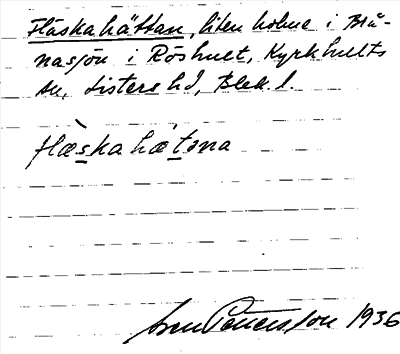 Fläskahättan, liten holme i Blå-
nasjön i Röshult, Kyrkhults
sn, Listers hd, Blek. l.
flæskahætəna
Sven Petersson 1936